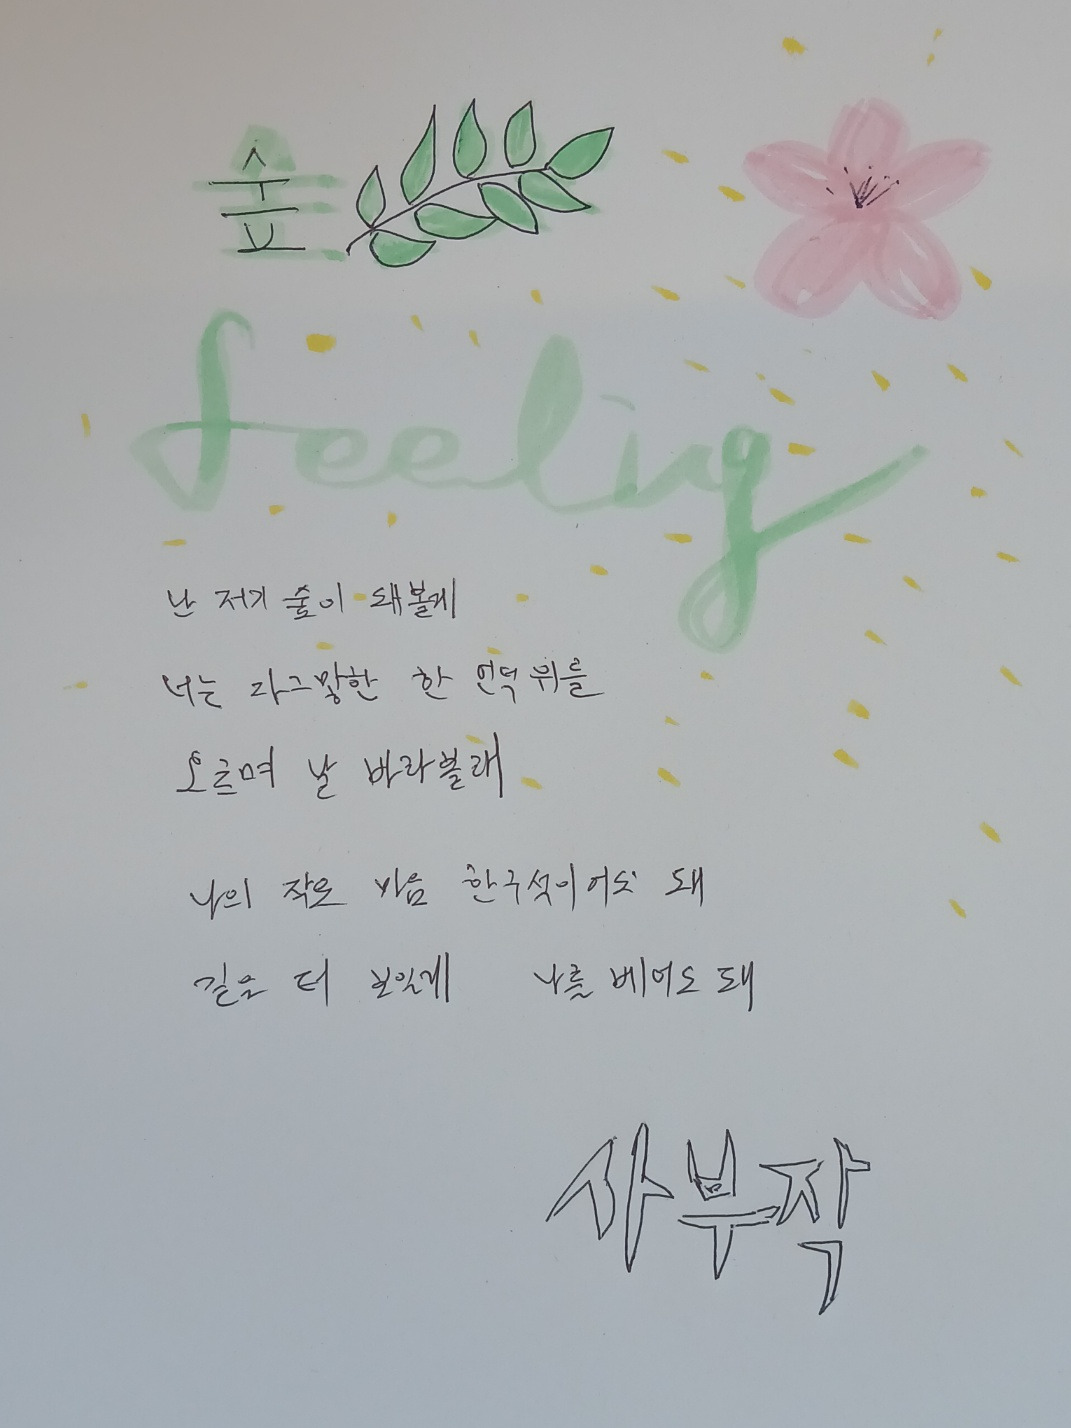 숲
feeling
난 저기 숲이 돼볼게
너는 자그맣한 한 언덕 위를
오르며 날 바라볼래
나의 작은 마음 한구석이어도 돼
길을 터 보일게 나를 베어도 돼
사부작